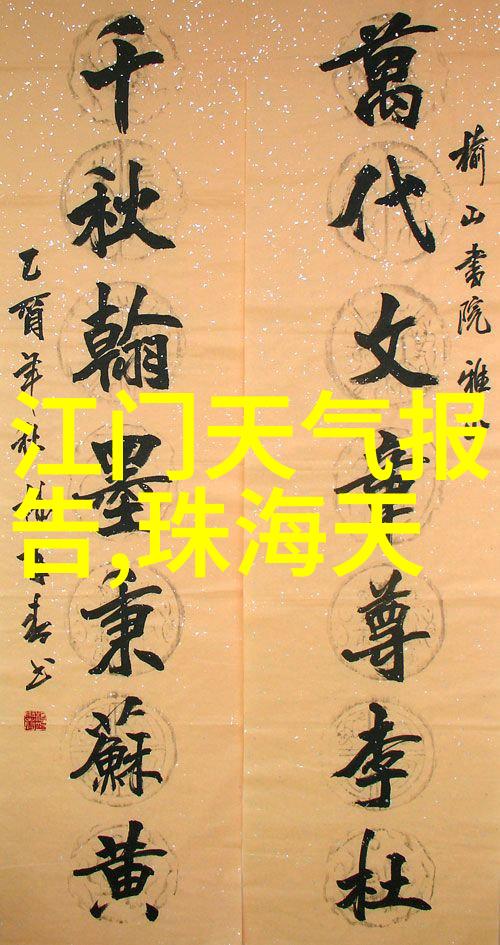 榆山書院雅
萬代文章尊李杜
千秋翰墨秉蘇黄
乙酉年秋
江门天气报
告,珠海天